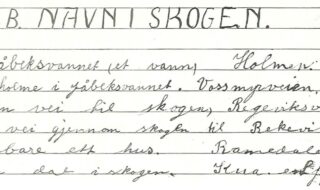 B. NAVN I SKOGEN.
åbeksvannet (et vann), Holmen.
holme i Fåbeksvannet. Vossmyrveien,
en vei til skogen, Regeviksv
vei gjennom skogen til Rekevi
bare ett hus. Ramedale
dal i skogen. Krua. en